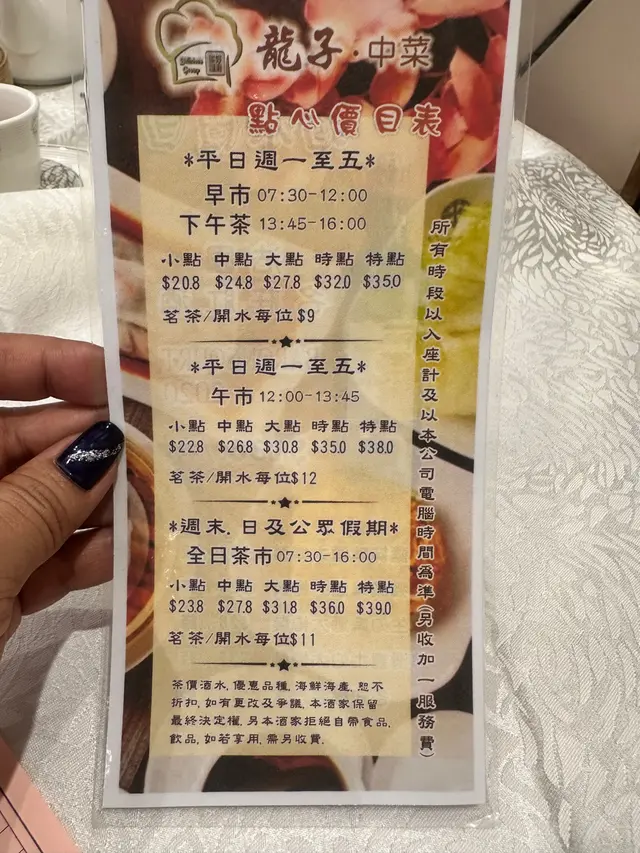 龍子·中菜
點心價目表
*平日週一至五*
早市 07:30-12:00
下午茶 13:45-16:00
小點 中點 大點 時點 特點
$20.8 $24.8 $27.8 $32.0 $35.0
茗茶/開水每位$9
*平日週一至五*
午市 12:00-13:45
小點 中點 大點 時點 特點
$22.8 $26.8 $30.8 $35.0 $38.0
茗茶/開水每位$12
*週末.日及公眾假期*
全日茶市 07:30-16:00
小點 中點 大點 時點 特點
$23.8 $27.8 $31.8 $36.0 $39.0
茗茶/開水每位$11
茶價酒水,優惠品種,海鮮海產,恕不
折扣,如有更改及爭議,本酒家保留
最終決定權,另本酒家拒絕自帶食品,
飲品,如若享用,需另收費.
所有時段以入座計及以本公司電腦時間為準(另收加一服務費)